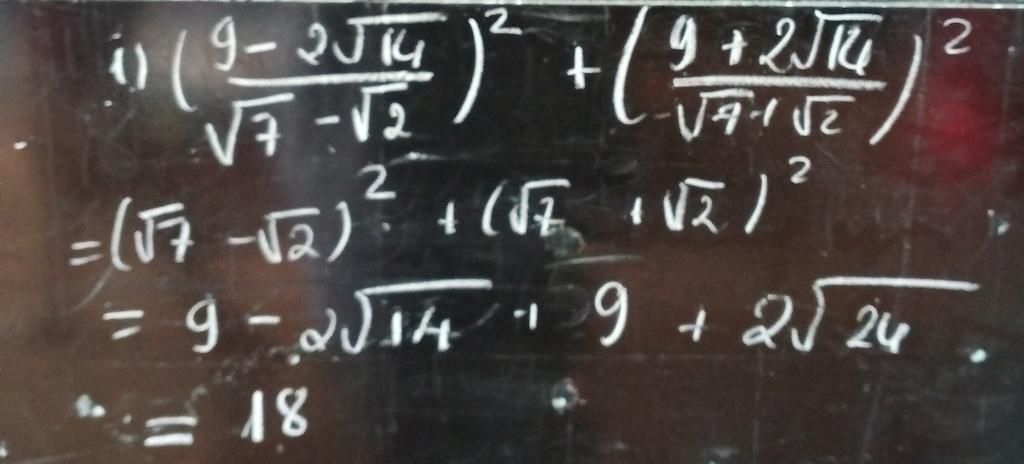 i) (9 - 2√14 / √7 - √2)² + (9 + 2√14 / √7 + √2)²
= (√7 - √2)² + (√7 + √2)²
= 9 - 2√14 + 9 + 2√24
= 18